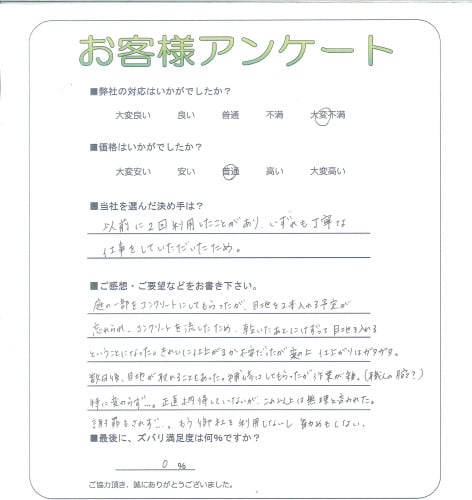 お客様アンケート
■弊社の対応はいかがでしたか?
大変良い 良い 普通 不満 大変不満
■価格はいかがでしたか?
大変安い 安い 普通 高い 大変高い
■当社を選んだ決め手は?
以前に2回利用したことがあり、いずれも丁寧な
仕事をしていただいたため。
■ご感想・ご要望などをお書き下さい。
庭の一部をコンクリートにしてもらったが、目地を2本入れる予定が
忘れられ、コンクリートを流したため、乾いたあとにけずって目地を入れる
ということになった。きれいに仕上がるか不安だったが案の上 仕上がりはガタガタ。
数日後、目地が取れることもあった。補修してもらったが作業が雑。(職人の腕?)
特に変わらず…。正直納得していないが、これ以上は無理と言われた。
謝罪もされず…。もう御社を利用しないし勧めもしない。
■最後に、ズバリ満足度は何%ですか?
0 %
ご協力頂き、誠にありがとうございました。